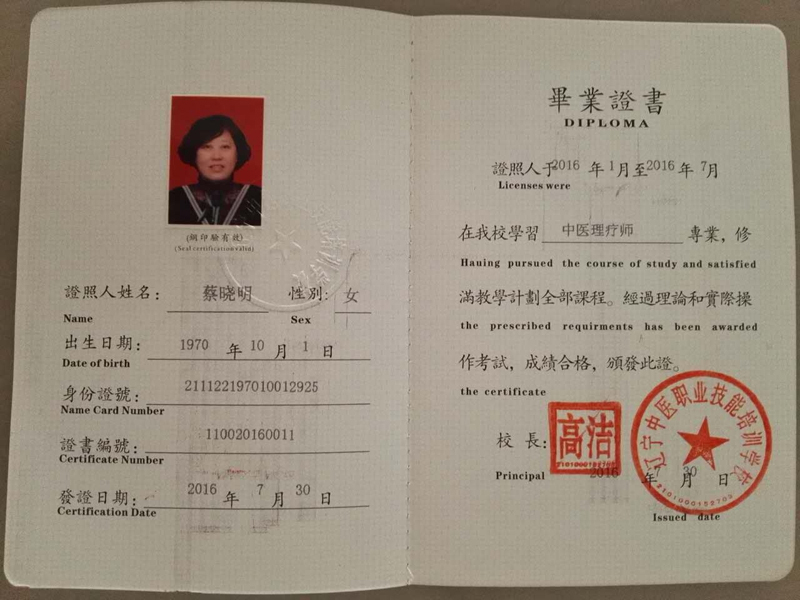 (鋼印驗有效)
(Seal certification valin)
證照人姓名: 蔡晓明 性別: 女
Name Sex
出生日期: 1970 年 10 月 1 日
Date of birth
身份證號: 211122197010012925
Name Card Number
證書編號: 110020160011
Certificate Number
發證日期: 2016 年 7 月 30 日
Certification Date
畢業證書
DIPLOMA
證照人于2016 年 1月至2016 年 7月
Licenses were
在我校學習 中医理疗师 專業，修
Hauing pursued the course of study and satisfied
滿教學計劃全部課程。經過理論和實際操
the prescribed requirments has been awarded
作考試，成績合格，頒發此證。
the certificate
校長: 高洁
Principal 2016 年 7 月 30 日
Issued date
辽宁中医职业技能培训学校
2101000152702